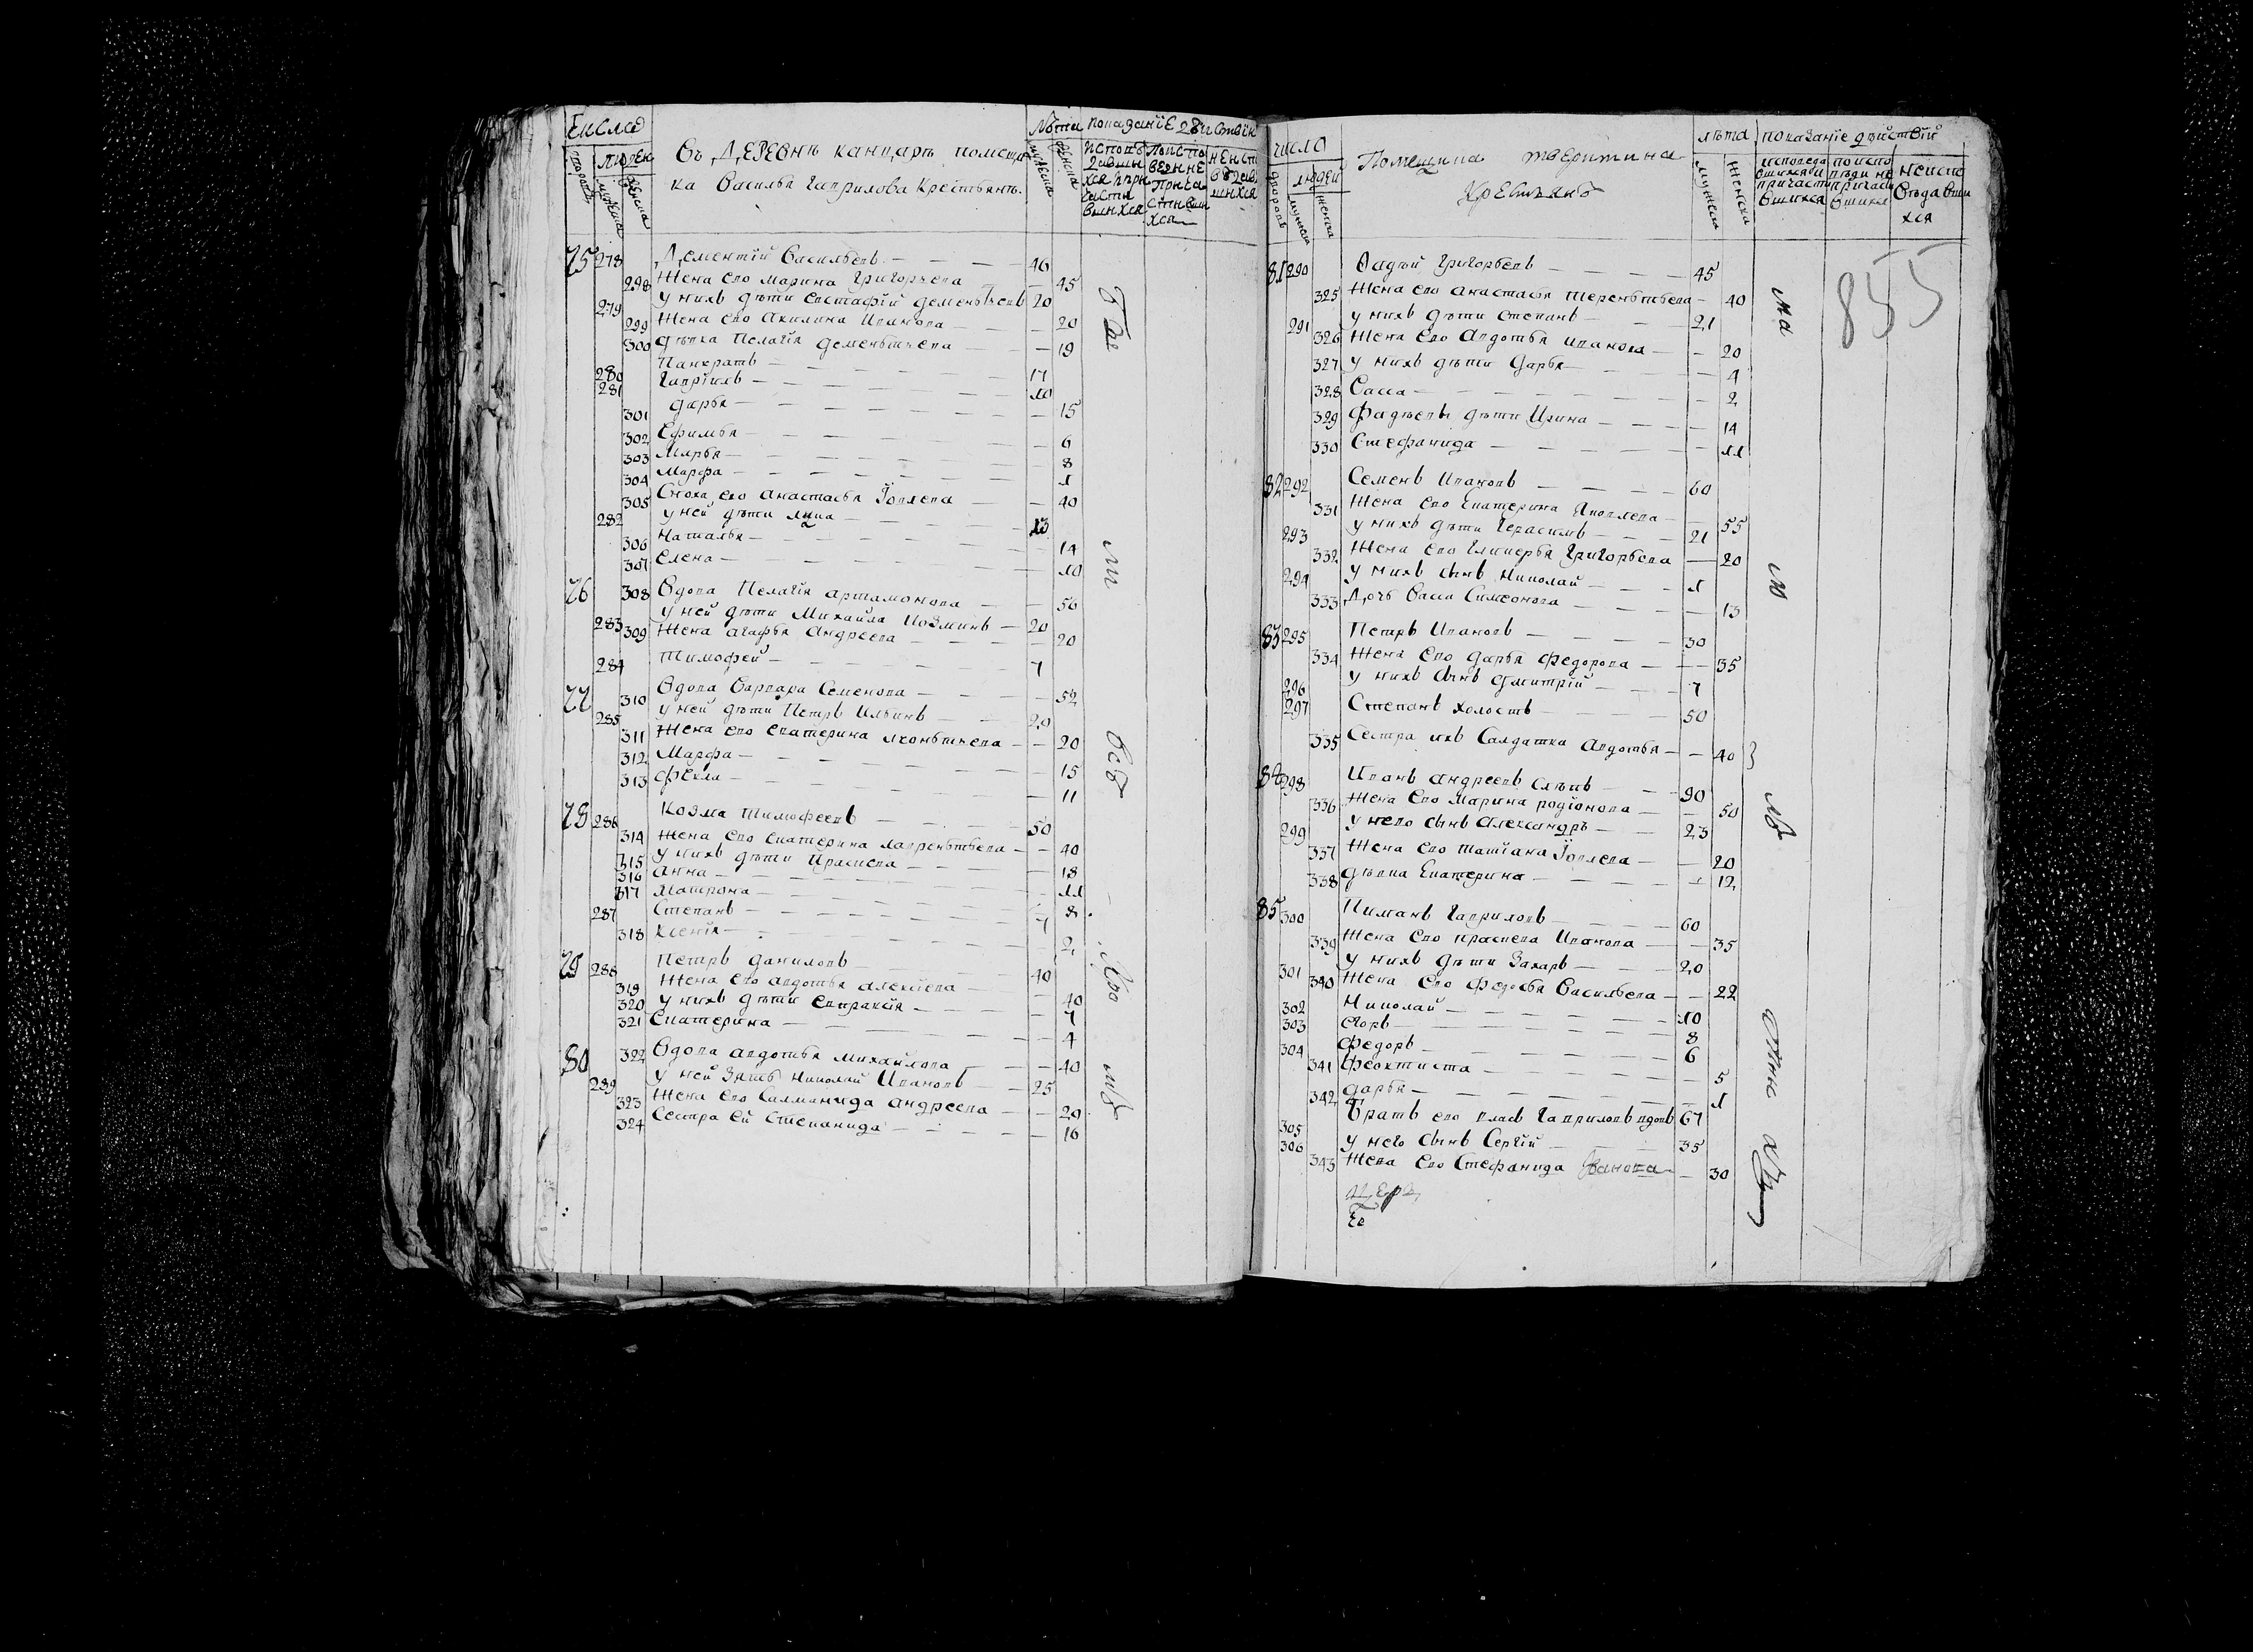 Число
Лѣта показанїе дѣйствїи
людей
дворовъ
мужеска
женска
Въ Деревнѣ канцарѣ помещи
ка Василья Гаврилова Крестьянъ
мужеска
женска
75 278 Дементїй Васильевъ 46
298 Жена ево марина Григорьева 45
279 у нихъ дѣти Евстафїй дементьевъ 20
299 Жена ево Акилина Иванова 20
300 дѣвка Пелагїя дементьева 19
280 Панкратъ 17
281 Гаврїилъ 10
301 дарья 15
302 Ефимья 6
303 Марья 8
304 Марфа 1
305 Сноха ево Анастасья Їовлева 40
282 у ней дѣти 13
306 Наталья 14
307 Елена 10
76 308 Вдова Пелагїя артамонова 50
283 у ней дѣти Михайла Козминъ 20
309 Жена агафья Андреева 20
284 Тимофей 7
77 310 Вдова Варвара Семенова 52
285 у ней дѣти Петръ Ильинъ 20
311 Жена ево екатерина леонтьева 20
312 Марфа 15
313 Фекла 11
78 286 Козма Тимофеевъ 50
314 Жена ево екатерина лаврентьева 40
315 у нихъ дѣти Ираклева 18
316 Анна 11
317 Матрона 8
287 Степанъ 7
318 Ксенїя 2
79 288 Петръ данилоъ 40
319 Жена ево авдотья алексїева 40
320 у нихъ дѣти Евпраксїя 7
321 Екатерина 4
80 322 Вдова авдотья михайлова 40
289 у ней Зять Николай Ивановъ 25
323 Жена ево Салманида андреева 20
324 Сестра ей Степанида 16
число
лѣта показанїе дѣйствїй
людей
Помещика тверитина
Крестьянъ
мужеска
женска
исповеда
вшихся и
причасти
вшихся
по испо
вѣди не
причасти
вшихся
неиспо
вѣдавши
хся
855
81 290 Фадѣй Григорьевъ 45
325 Жена ево анастасья терентьева 40
291 у нихъ дѣти Степанъ 21
326 Жена ево Авдотья иванова 20
327 у нихъ дѣти дарья 4
328 Васса 2
329 Фадѣевы дѣти Ирина 14
330 Стефанида 11
82 292 Семенъ Ивановъ 60
331 Жена ево Екатерина Яковлева 55
293 у нихъ дѣти Герасимъ 21
332 Жена ево Гликерья Григорьева 20
294 у нихъ сынъ Николай 1
333 Дочь Васса Симеонова 13
83 295 Петръ Ивановъ 30
334 Жена ево дарья федорова 35
296 у нихъ сынъ дмитрїй 7
297 Степанъ холостъ 50
335 Сестра ихъ Салдатка авдотья 40
84 298 Иванъ андреевъ слѣпъ 90
336 Жена ево Марина родїонова 50
299 у нево сынъ Александръ 23
337 Жена ево татїана Їовлева 20
338 дѣвка Екатерина 12
85 300 Кимаnъ Гавриловъ 60
339 Жена ево праскева Иванова 35
301 у нихъ дѣти Захаръ 20
340 Жена ево федосья Васильева 22
302 Николай 10
303 егоръ 8
304 федоръ 6
341 феоктиста 5
342 дарья 1
305 Братъ ево власъ Гавриловъ вдовъ 67
306 у него сынъ Сергїй 35
343 Жена ево Стефанида Иванова 30